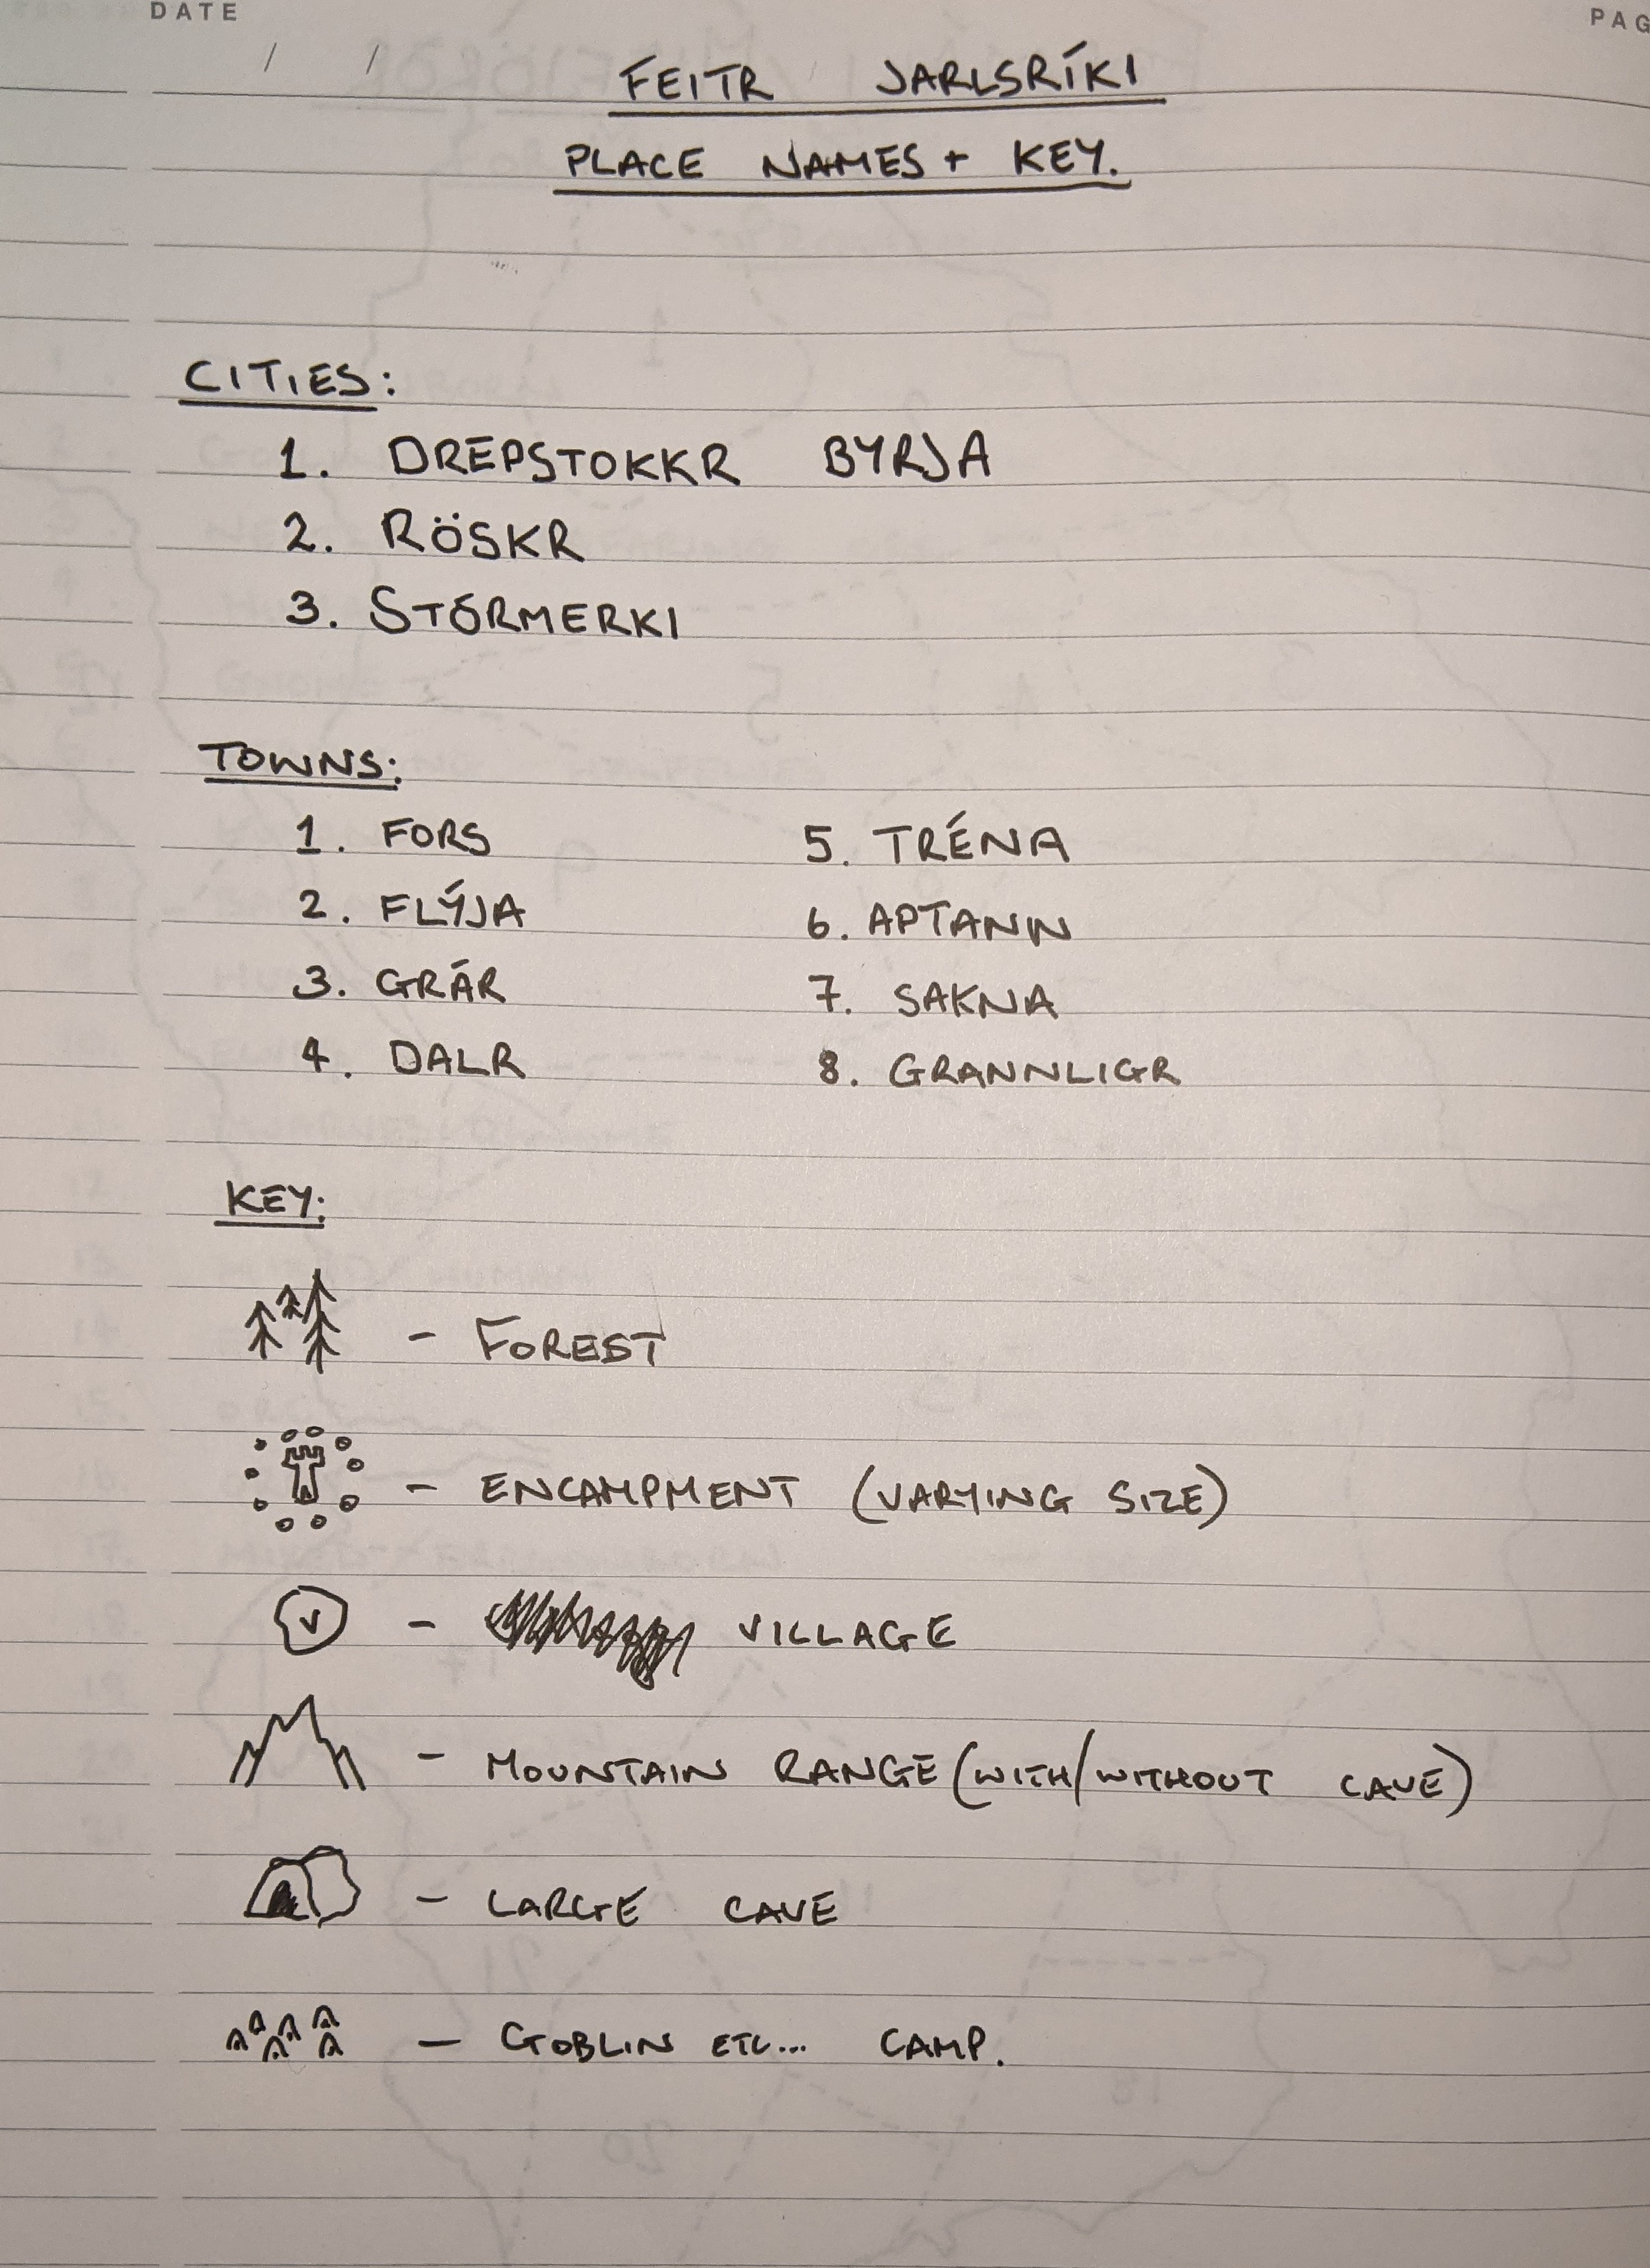 DATE
PAG
/ /
FEITR JARLSRÍKI
PLACE NAMES + KEY.
CITIES:
1. DREPSTOKKR BYRJA
2. RÖSKR
3. STÓRMERKI
TOWNS:
1. FORS
2. FLÝJA
3. GRÁR
4. DALR
5. TRÉNA
6. APTANN
7. SAKNA
8. GRANNLIGR
KEY:
- FOREST
- ENCAMPMENT (VARYING SIZE)
V - VILLAGE
- MOUNTAIN RANGE (WITH/WITHOUT CAVE)
- LARGE CAVE
- GOBLIN ETC... CAMP.